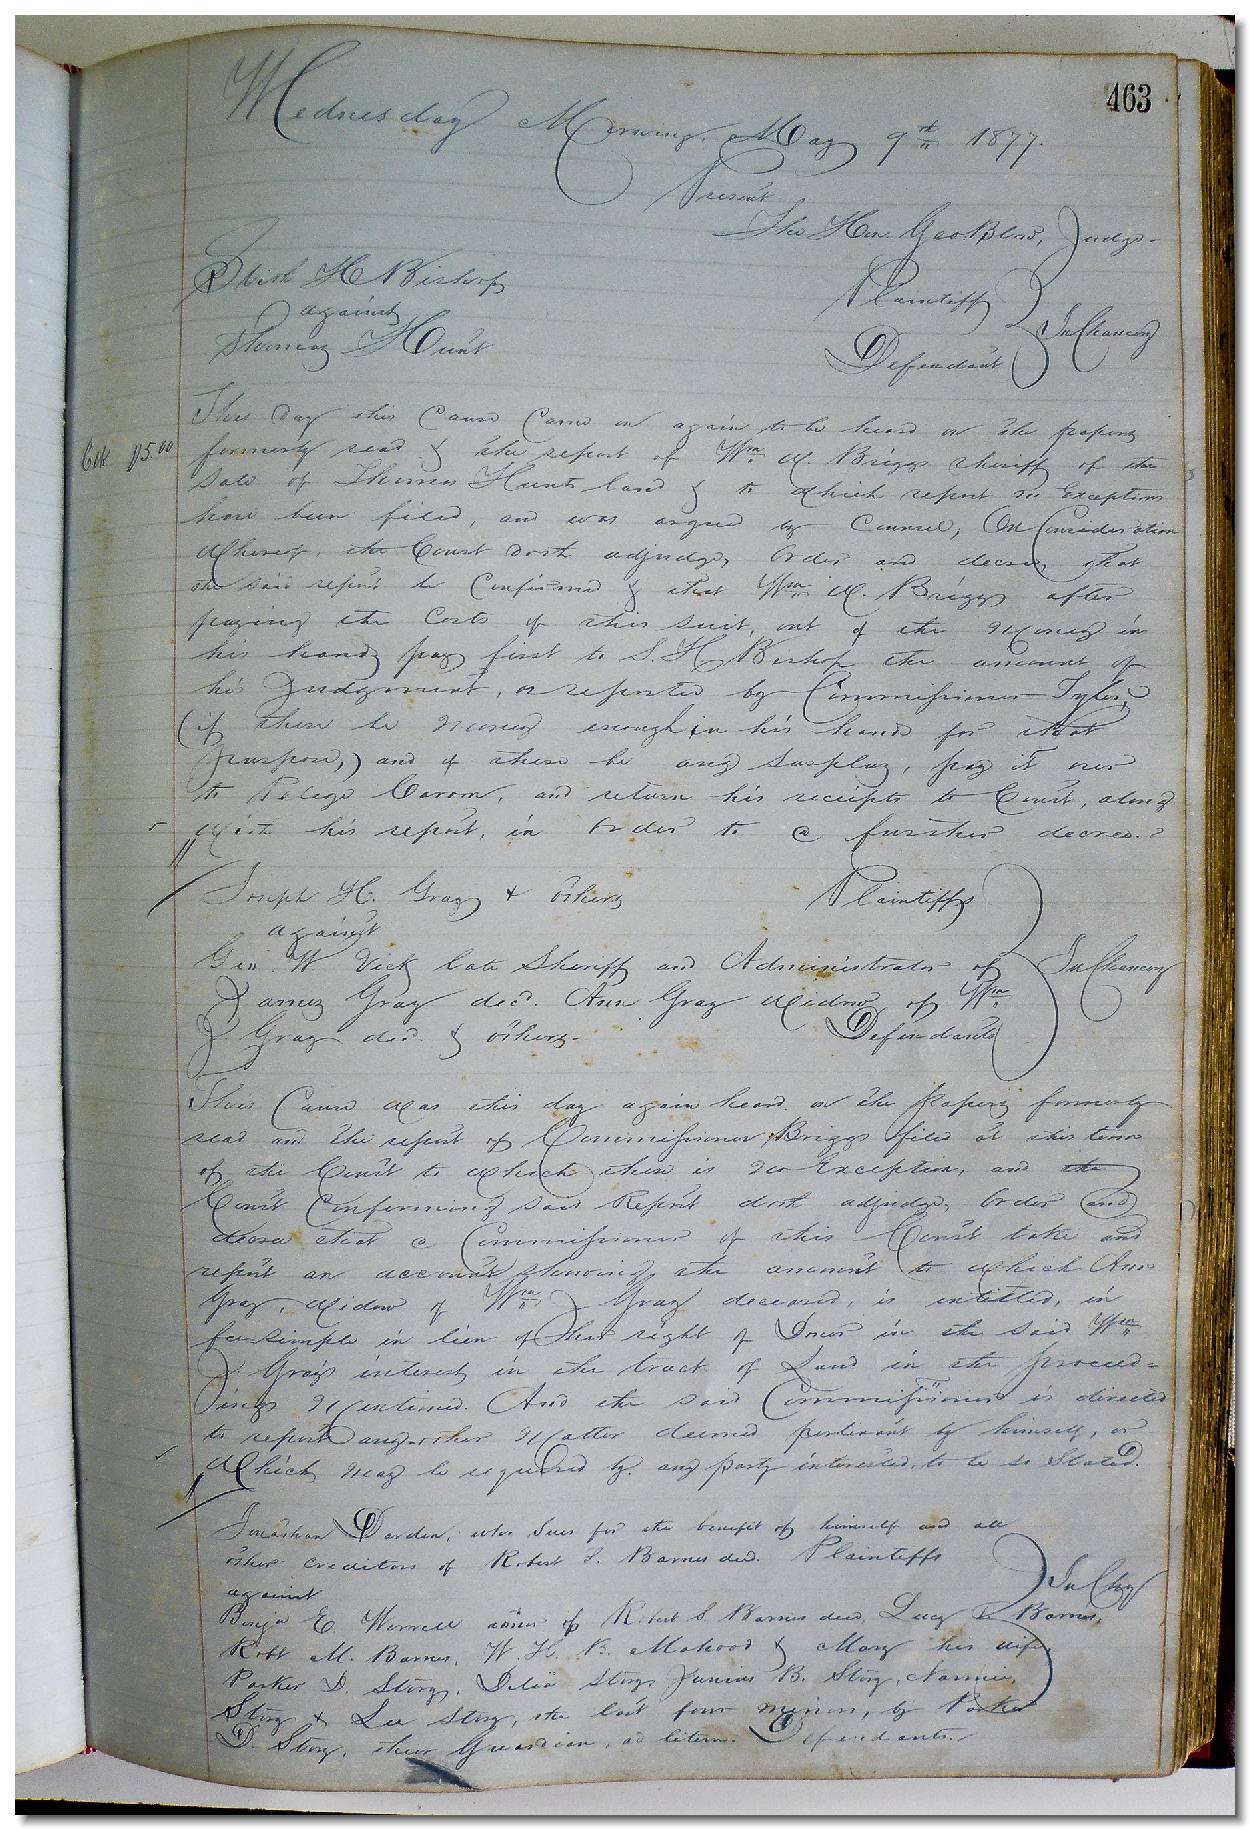 463
Wednesday Morning, May 9th 1877.
Present
The Hon. Geo Blow, Judge
H Bishop Plaintiff
against In Chancery
Thomas Hunt Defendant
This day this Cause Came on again to be heard on the papers
formerly read & the report of Wm A. Briggs Sheriff of the
$5.00
Sale of Thomas Hunts land & to which report no Exceptions
have been filed, and was argued by Counsel, On Consideration
Whereof, the Court doth adjudge, Order and decree that
the said report be Confirmed & that Wm A. Briggs after
paying the Costs of this suit, out of the Money in
his hands pay first to S. H Bishop the amount of
his Judgement, as reported by Commissioner Tyler,
(if there be money enough in his hands for that
purpose,) and if there be any Surplus, pay it over
to and return his receipts to Court, along
With his report, in Order to a further decree.
Joseph H. Gray & others Plaintiffs
against
Geo. W Vick late Sheriff and Administrator of In Chancery
James Gray decd. Ann Gray Widow of Wm
J. Gray decd. & others. Defendants
This Cause Was this day again heard on the papers formerly
read and the report of Commissioner Briggs filed at this term
of the Court to which there is no Exception, and the
Court Confirming said Report doth adjudge, Order and
decree that a Commissioner of this Court take and
report an account showing the amount to which Ann
Gray, Widow of Wm J Gray deceased, is entitled, in
feesimple in lieu of her right of Dower in the said Wm
J Grays interest in the tract of Land in the proceed=
ings Mentioned. And the said Commissioner is directed
to report any other Matter deemed pertinent by himself, or
Which may be required by any party interested, to be so Stated.
Jonathan Darden, who Sues for the benefit of himself and all
other creditors of Robert S. Barnes decd. Plaintiffs
against In Chy
Benja E Worrell admr of Robert S. Barnes decd, Lucy Barnes,
Robt M. Barnes, W. H. Mahood & Mary his wife,
Parker D. Story, Delia Story, Junius B. Story, Nannie
Story & Lee Story, the last four minors, by Parker
D. Story, their Guardian, ad litem. Defendants.